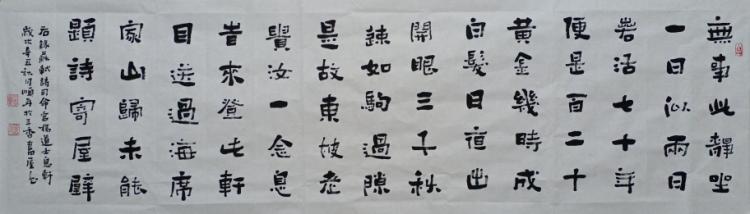 無事此靜坐
一日似兩日
若活七十年
便是百二十
黃金幾時成
白髮日出
開眼三千秋
速如駒過隙
是故東坡老
汝一念息
旹來登此軒
目送過海席
家山歸未能
題詩寄屋壁
右錄蘇軾詩司命宮楊道士息軒
歲次辛丑秋月於三香書屋